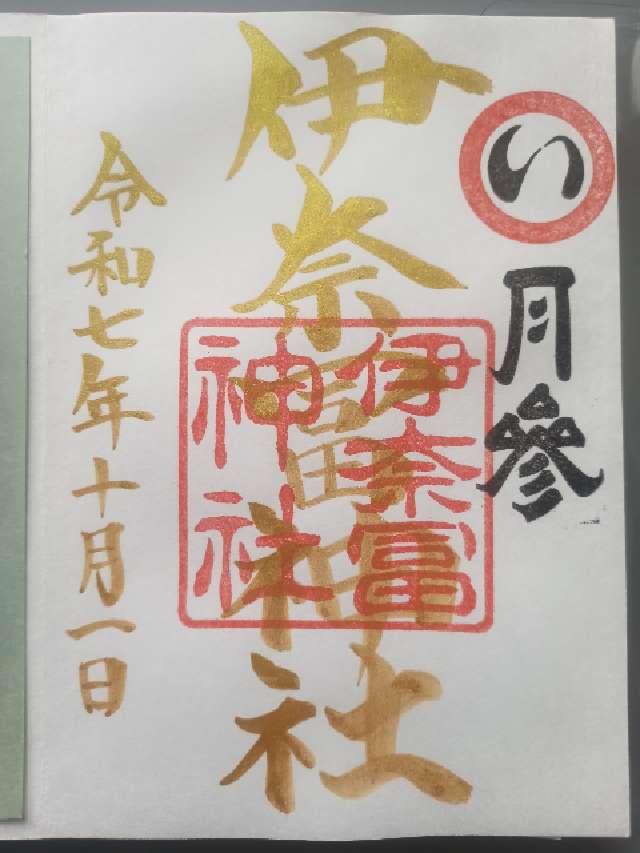 い
月參
伊奈冨神社
伊奈冨
神社
令和七年十月一日